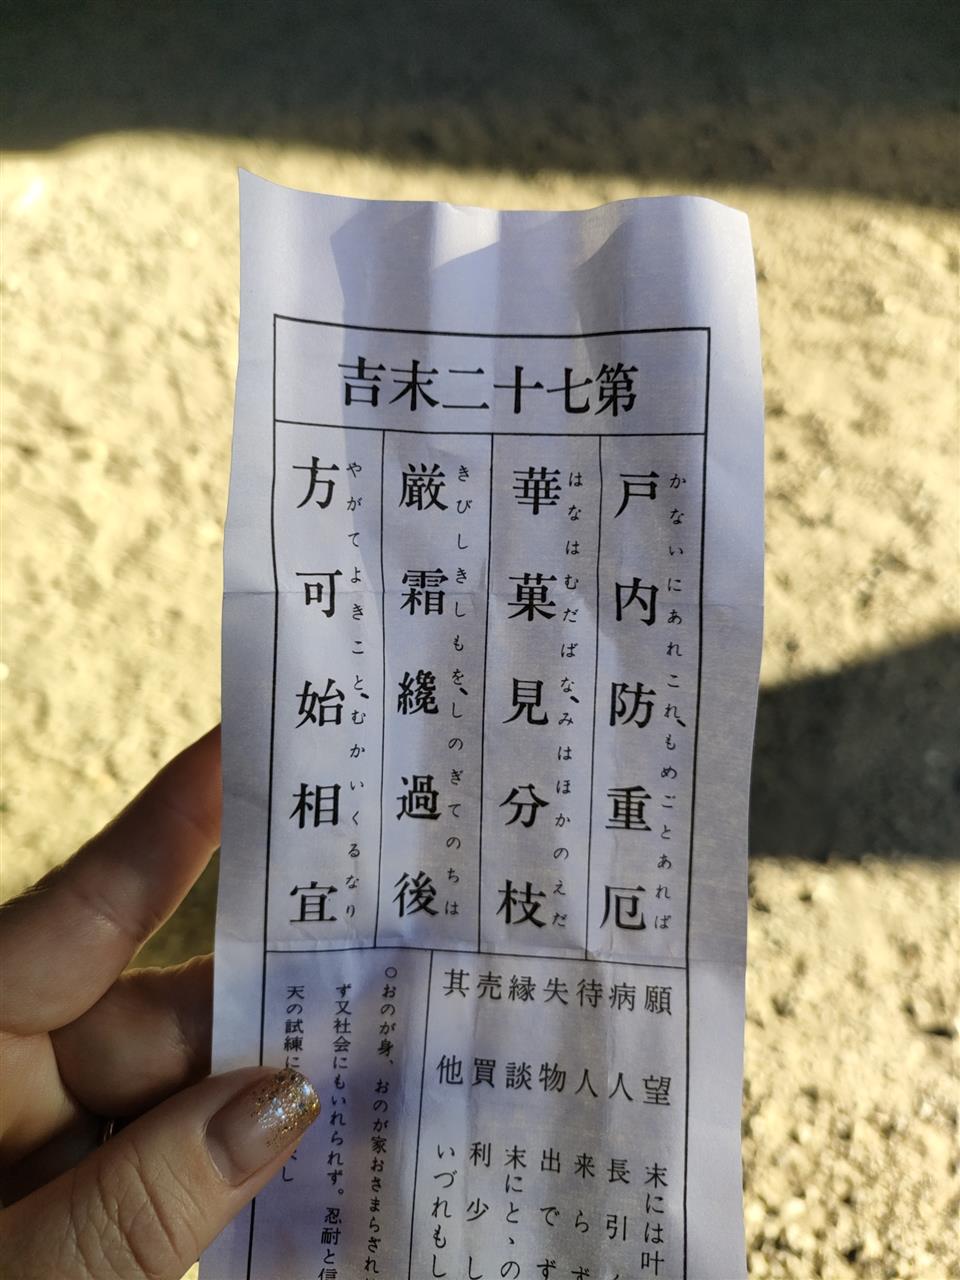 第七十二末吉
戸内防重厄
かないにあれこれ、もめごとあれば
華菓見分枝
はなはむだばな、みはほかのえだ
厳霜纔過後
きびしきしもを、しのぎてのちは
方可始相宜
やがてよきこと、むかいくるなり
願望 末には叶
病人 長引
待人 来らず
失物 出でず
縁談 末にとゝの
売買 利少し
其他 いづれもし
○おのが身、おのが家おさまらざれ
ず又社会にもいれられず。忍耐と信
天の試練に